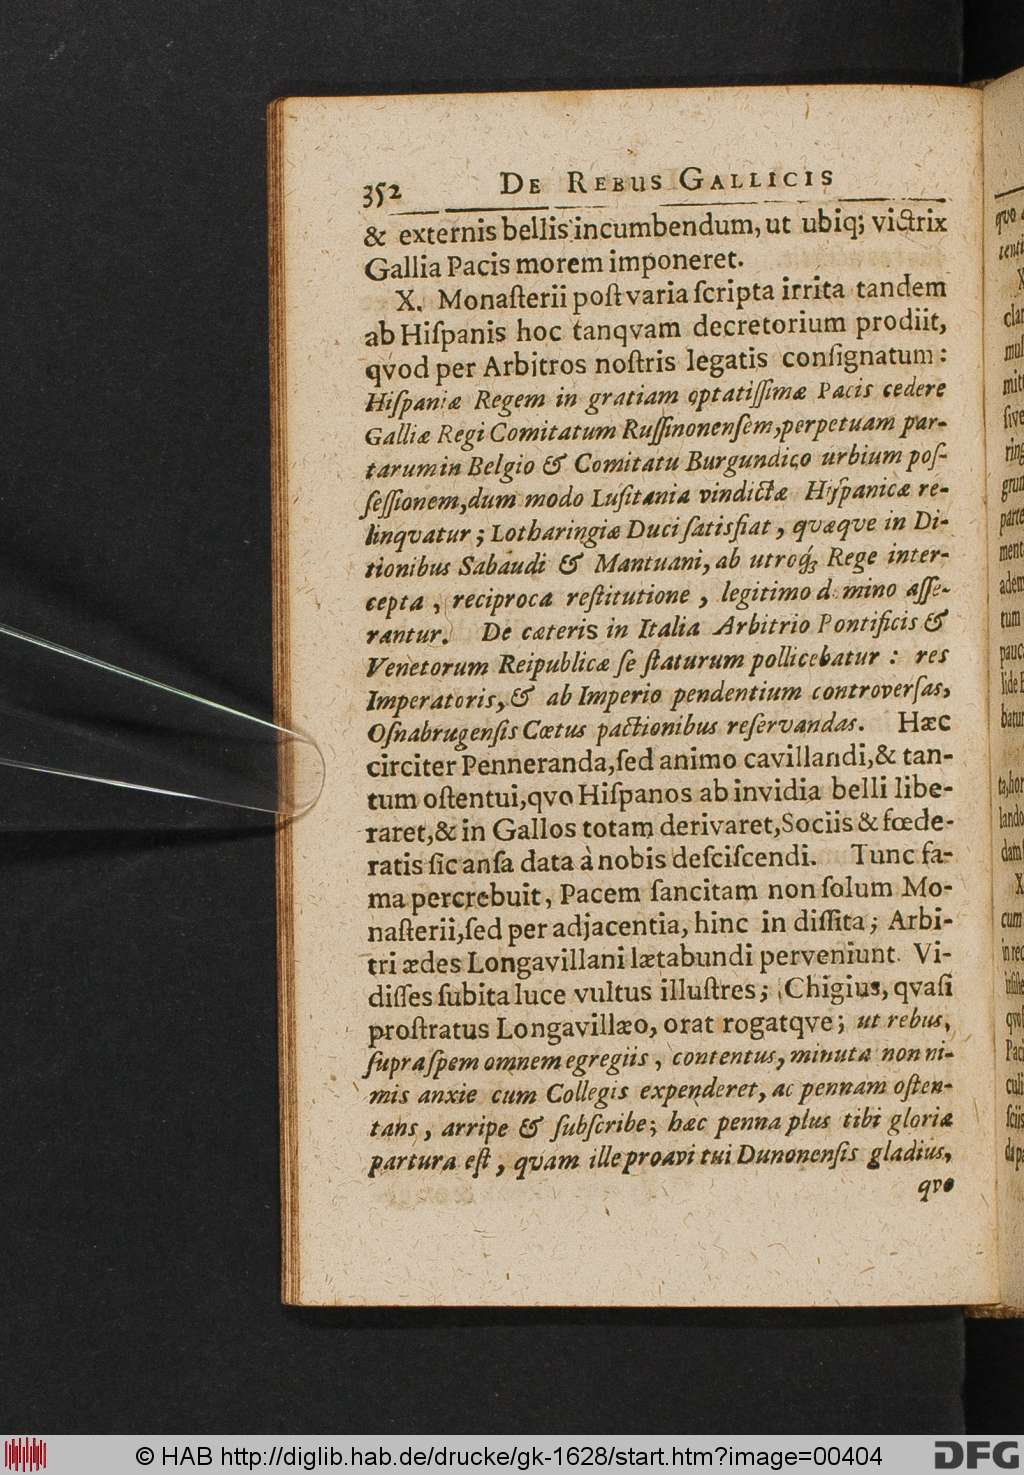 352 DE REBUS GALLICIS
& externis bellis incumbendum, ut ubiq; victrix
Gallia Pacis morem imponeret.
X. Monaſterii poſt varia ſcripta irrita tandem
ab Hiſpanis hoc tanqvam decretorium prodiit,
qvod per Arbitros noſtris legatis conſignatum:
Hiſpaniæ Regem in gratiam optatiſſimæ Pacis cedere
Galliæ Regi Comitatum Ruſſinonenſem, perpetuam par-
tarum in Belgio & Comitatu Burgundico urbium poſ-
ſeſſionem, dum modo Luſitania vindictæ Hiſpanicæ re-
linqvatur; Lotharingiæ Duci ſatisfiat, qvæqve in Di-
tionibus Sabaudi & Mantuani, ab utroq́; Rege inter-
cepta, reciproca reſtitutione, legitimo d mino aſſe-
rantur. De cæteris in Italia Arbitrio Pontificis &
Venetorum Reipublicæ ſe ſtaturum pollicebatur: res
Imperatoris, & ab Imperio pendentium controverſas,
Oſnabrugenſis Cœtus pactionibus reſervandas. Hæc
circiter Penneranda, ſed animo cavillandi, & tan-
tum oſtentui, qvo Hiſpanos ab invidia belli libe-
raret, & in Gallos totam derivaret, Sociis & fœde-
ratis ſic anſa data à nobis deſciſcendi. Tunc fa-
ma percrebuit, Pacem ſancitam non ſolum Mo-
naſterii, ſed per adjacentia, hinc in diſſita; Arbi-
tri ædes Longavillani lætabundi perveniunt. Vi-
diſſes ſubita luce vultus illuſtres; Chigius, qvaſi
proſtratus Longavillæo, orat rogatqve; ut rebus,
ſupra ſpem omnem egregiis, contentus, minuta non ni-
mis anxie cum Collegis expenderet, ac pennam oſten-
tans, arripe & ſubſcribe; hæc penna plus tibi gloriæ
partura eſt, qvam ille proavi tui Dunonenſis gladius,
qvo
qvo
X
clar
mul
mit
ſive
ring
grun
parte
ment
adem
tum
pauc
lide
batur
lando
dam
X
cum
in rec
qvo
Pac
culi
ſciis
© HAB http://diglib.hab.de/drucke/gk-1628/start.htm?image=00404
DFG